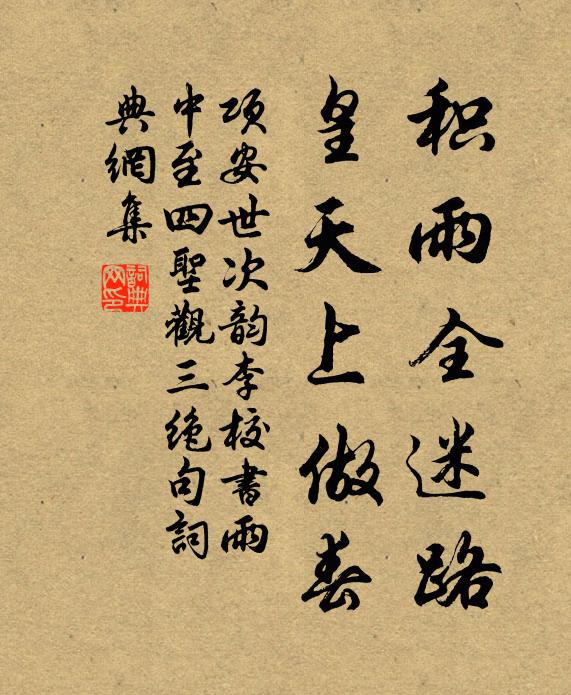 积雨全迷路
皇天上做春
项安世次韵李校書雨
中至四聖觀三绝句詞
典網集
詞典
网印